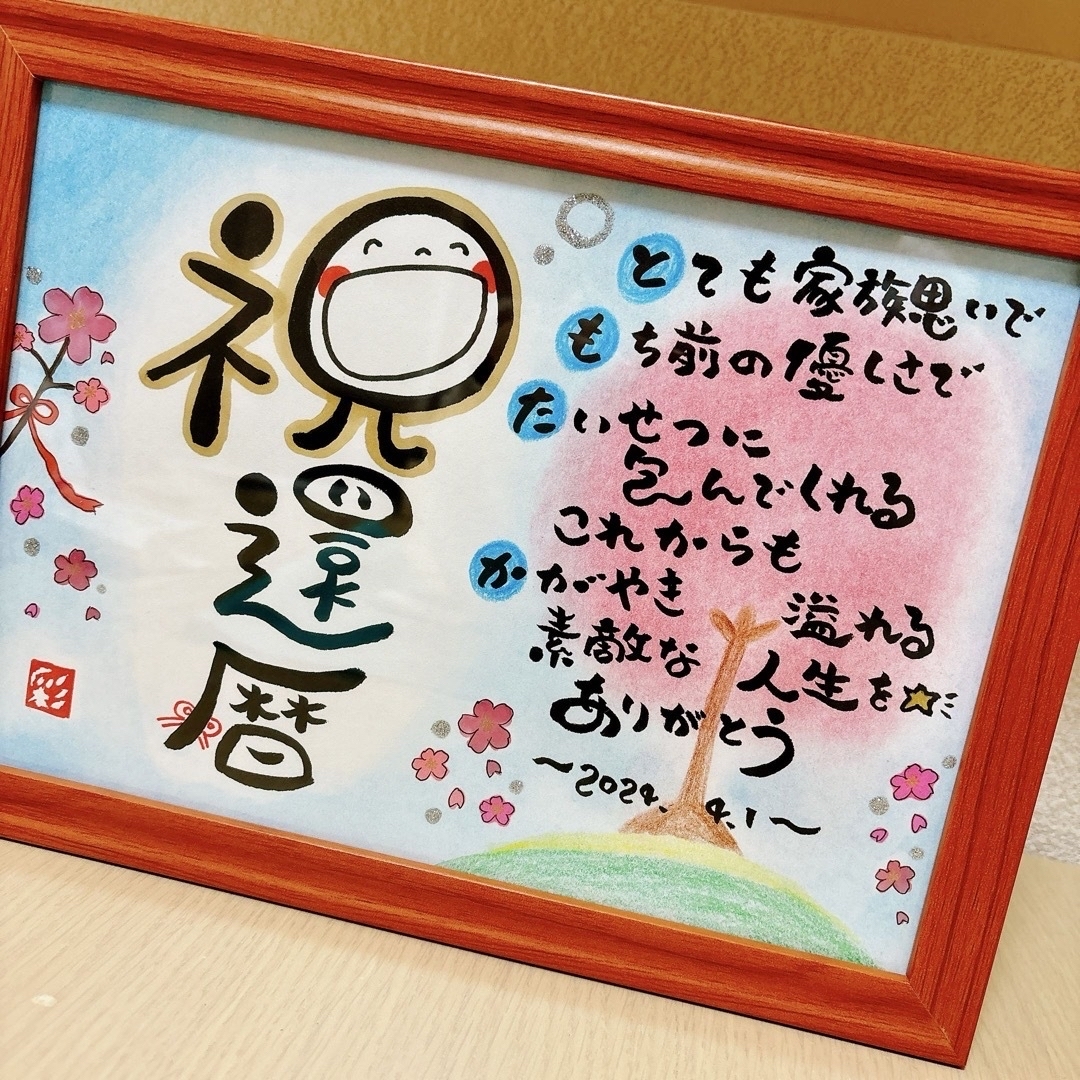 祝
還
暦
とても家族思いで
もち前の優しさで
たいせつに
包んでくれる
これからも
かがやき溢れる
素敵な人生を
ありがとう
～2024.4.1～
彩